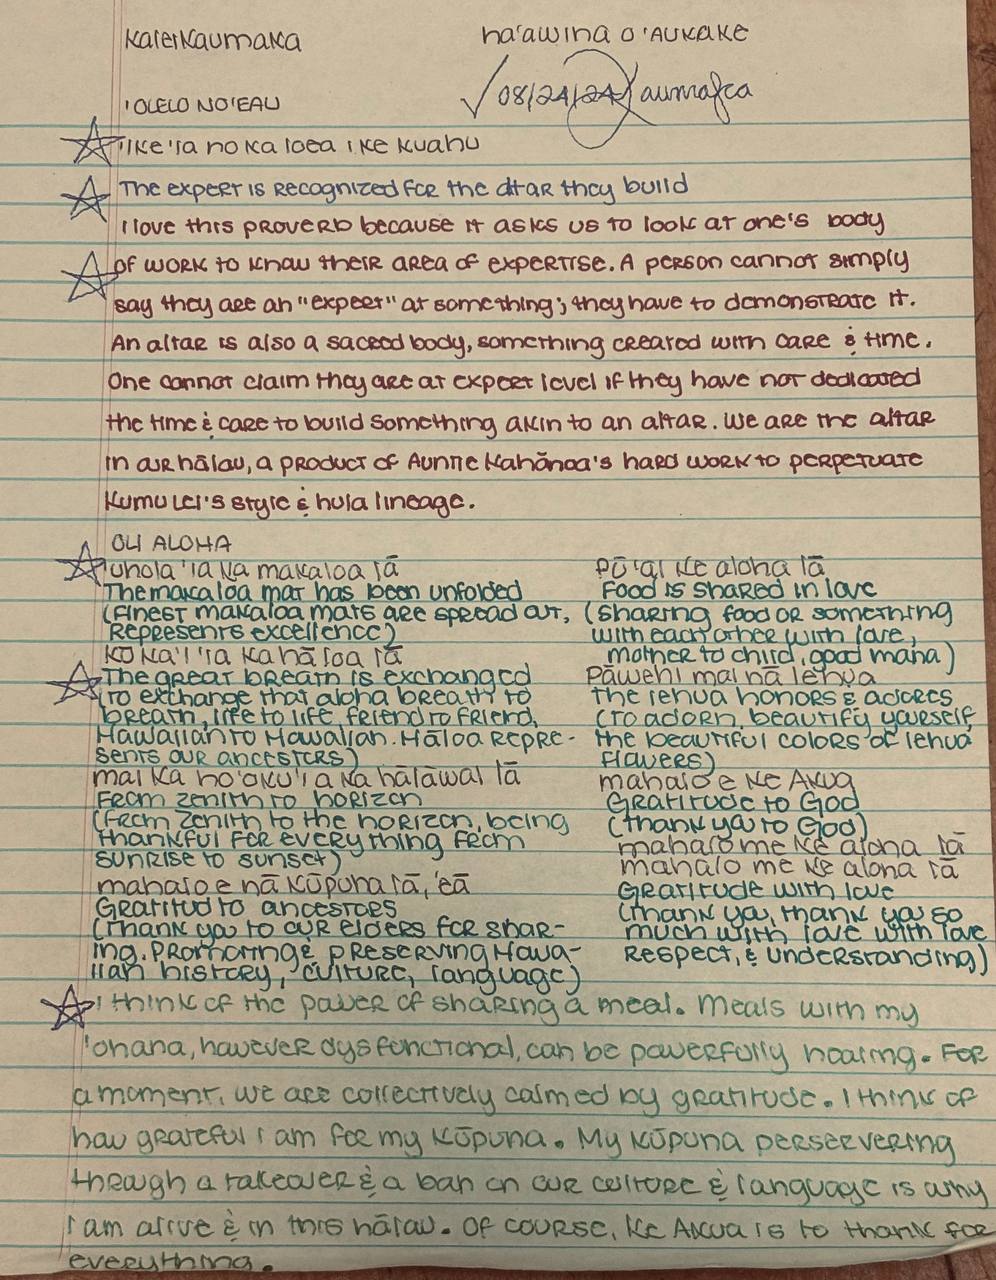 Kaleikaumaka
ha'awina o 'Aukake
✓ 08/24/24 Kaumaka
'OLELO NO'EAU
'Ike 'ia no ka loea i ke kuahu
The expert is recognized for the altar they build
I love this proverb because it asks us to look at one's body
of work to know their area of expertise. A person cannot simply
say they are an "expert" at something; they have to demonstrate it.
An altar is also a sacred body, something created with care & time.
One cannot claim they are at expert level if they have not dedicated
the time & care to build something akin to an altar. We are the altar
in our hālau, a product of Auntie Kahānoa's hard work to perpetuate
Kumu Lei's style & hula lineage.
OLI ALOHA
'uhola 'ia ka makaloa lā
The makaloa mat has been unfolded
(finest makaloa mats are spread out,
represents excellence)
KŌ KA'I 'ia ka hāloa lā
The great breath is exchanged
(to exchange that aloha breath to
breath, life to life, friend to friend,
Hawaiian to Hawaiian. Hāloa repre-
sents our ancestors)
mai ka ho'oku'i a ka hālāwai lā
From zenith to horizon
(from zenith to the horizon, being
thankful for everything from
sunrise to sunset)
mahalo e nā kūpuna lā, 'eā
Gratitud to ancestors
(Thank ya to our elders for shar-
ing, promoting & preserving Hawa-
iian history, culture, language)
Pū'ai ke aloha lā
Food is shared in love
(sharing food or something
with each other with love,
mother to child, good mana)
Pāwehi mai nā lehua
The lehua honors & adores
(to adorn, beautify yourself,
the beautiful colors of lehua
flowers)
mahalo e ke Akua
Gratitude to God
(Thank ya to God)
mahalo me ke aloha lā
mahalo me ke aloha lā
Gratitude with love
(thank ya, thank ya so
much with love with love
respect, & understanding)
I think of the power of sharing a meal. Meals with my
'ohana, however dysfunctional, can be powerfully healing. For
a moment, we are collectively calmed by gratitude. I think of
how grateful I am for my kūpuna. My kūpuna perservering
through a takeover & a ban on our culture & language is why
I am alive & in this hālau. Of course, Ke Akua is to thank for
everything.